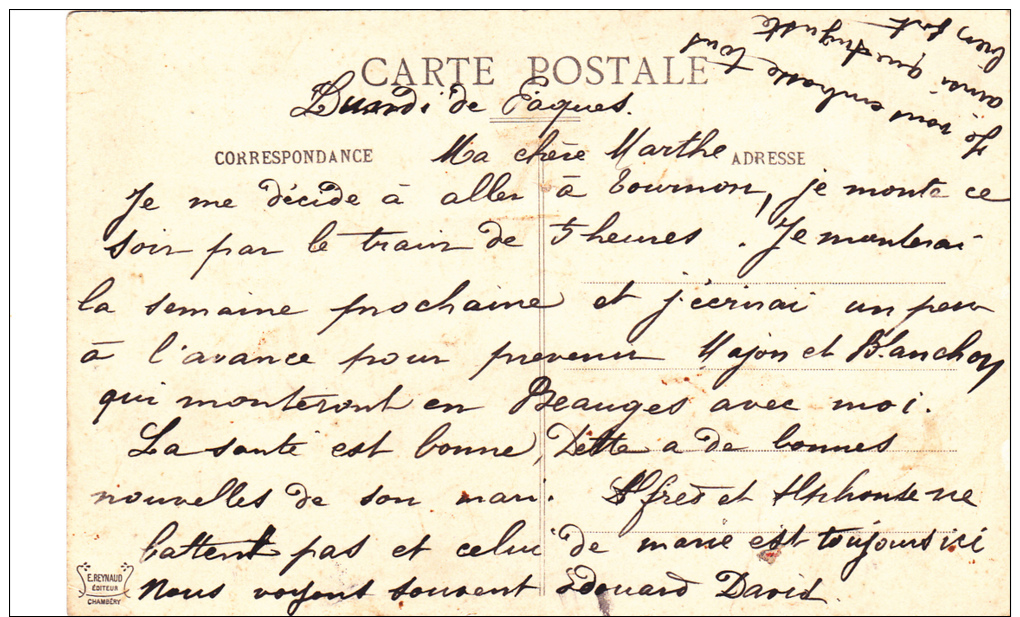 CARTE POSTALE
Lundi de Pâques.
CORRESPONDANCE
ADRESSE
Ma chère Marthe
Je me décide à aller à Tournon, je monte ce
soir par le train de 5 heures. Je monterai
la semaine prochaine et j'écrirai un peu
à l'avance pour prevenir Majon et Blanchon
qui monteront en Beauges avec moi.
La santé est bonne, Dette a de bonnes
nouvelles de son mari. Alfred et Alphonse ne
battent pas et celui de marie est toujours ici
Nous voyons souvent Edouard David.
Je vous embrasse tous
ainsi que Auguste
bien fort
E. REYNAUD
ÉDITEUR
CHAMBÉRY